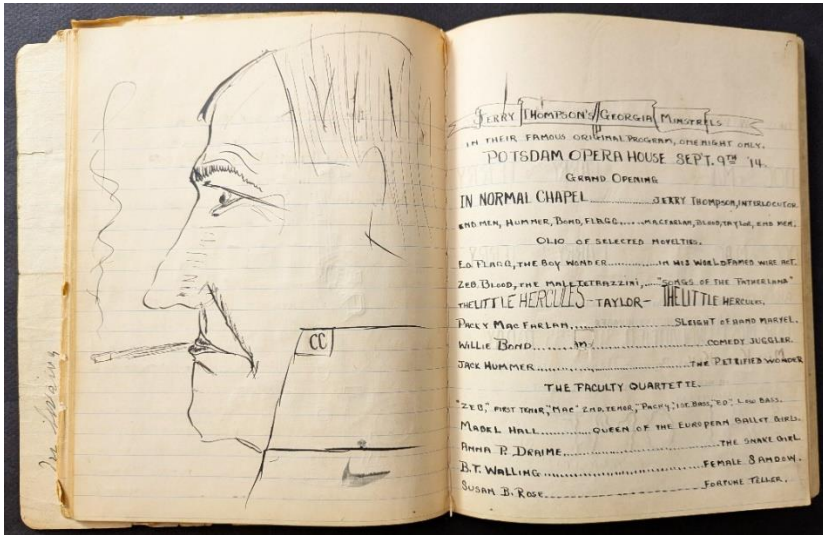 CC
JERRY THOMPSON'S GEORGIA MINSTRELS
IN THEIR FAMOUS ORIGINAL PROGRAM, ONE NIGHT ONLY.
POTSDAM OPERA HOUSE SEPT. 9TH '14.
GRAND OPENING
IN NORMAL CHAPEL...............JERRY THOMPSON, INTERLOCUTOR
END MEN, HUMMER, BOND, FLAGG......MACFARLAN, BLOOD, TAYLOR, END MEN.
OLIO OF SELECTED NOVELTIES.
ED FLAGG, THE BOY WONDER...............IN HIS WORLD FAMED WIRE ACT.
ZEB. BLOOD, THE MALE TETRAZZINI,...."SONGS OF THE FATHERLAND"
THE LITTLE HERCULES - TAYLOR - THE LITTLE HERCULES.
PACKY MACFARLAN,....................SLEIGHT OF HAND MARVEL.
WILLIE BOND.....................COMEDY JUGGLER.
JACK HUMMER.........................THE PETRIFIED WONDER
THE FACULTY QUARTETTE.
"ZEB," FIRST TENOR, "MAC" 2ND. TENOR, "PACKY," 1ST. BASS, "ED", LOW BASS.
MABEL HALL............QUEEN OF THE EUROPEAN BALLET GIRLS.
ANNA P. DRAIME...........................THE SNAKE GIRL
B.T. WALLING..............................FEMALE SANDOW.
SUSAN B. ROSE---------------------FORTUNE TELLER.